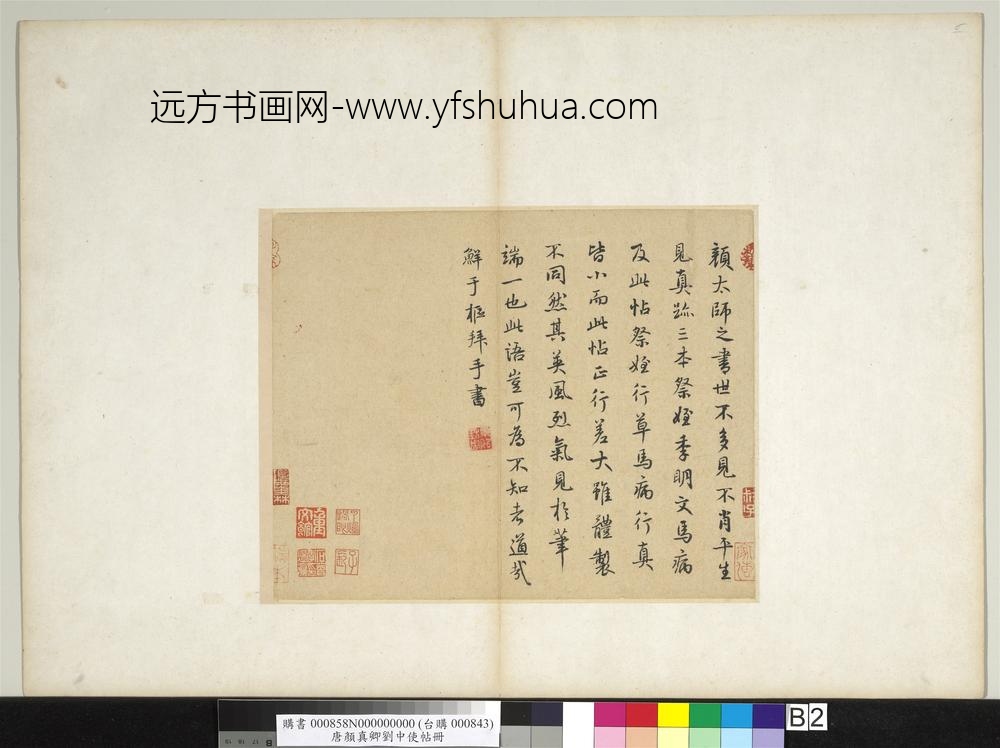 远方书画网-www.yfshuhua.com
顏太師之書世不多見不肖平生
見真跡三本祭姪季明文馬病
及此帖祭姪行草馬病行真
皆小而此帖正行差大雖體製
不同然其英風烈氣見於筆
端一也此語豈可為不知者道哉
鮮于樞拜手書
購書 000858N000000000 (台購 000843)
唐顏真卿劉中使帖冊
B2